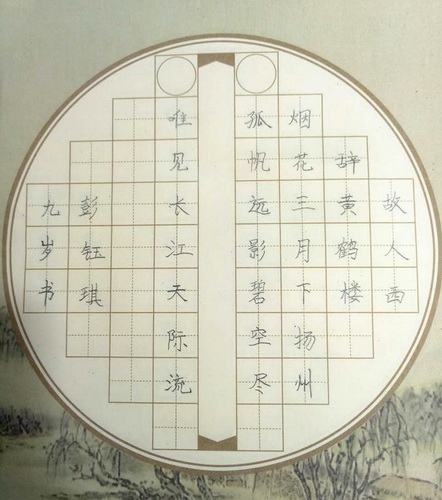 故人西
辞黄鹤楼
烟花三月下扬州
孤帆远影碧空尽
唯见长江天际流
彭钰琪
九岁书